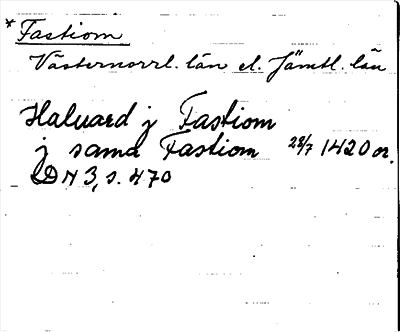 * Fastiom
Västernorrl. län el. Jämtl. län
Haluard j Fastiom
j sama Fastiom 28/7 1420 or.
DN 3, s. 470